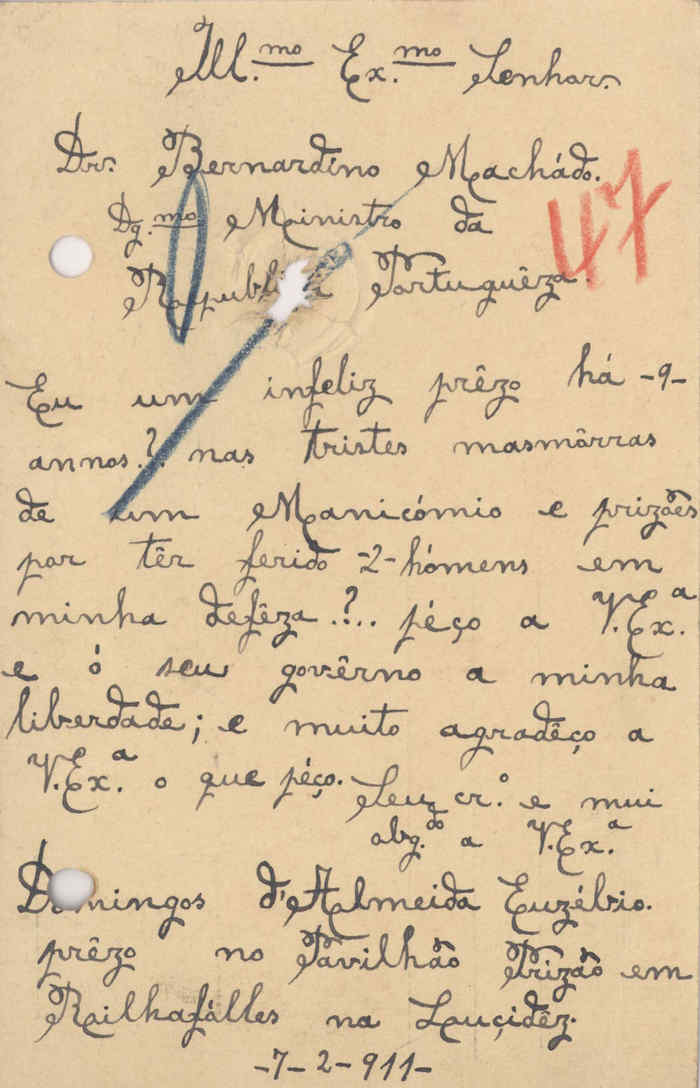 Ill.mo Ex.mo Senhor.
Dr. Bernardino Machádo.
47
Dg.mo Ministro da
Portuguêza.
Eu um infeliz prêzo há -9-
annos.?. nas tristes masmôrras
de um Manicómio e prizões
por têr ferido -2- hómens em
minha defêza.?.. péço a V.Ex.a
e ó seu govêrno a minha
liberdade; e muito agradêço a
V.Ex.a o que péço.
Seu cr.o e mui
obg.do a V.Ex.a
Domingos d'Almeida Euzébio.
prêzo no Pavilhão Prizão em
Railhafálles na Lauçidêz.
-7-2-911-